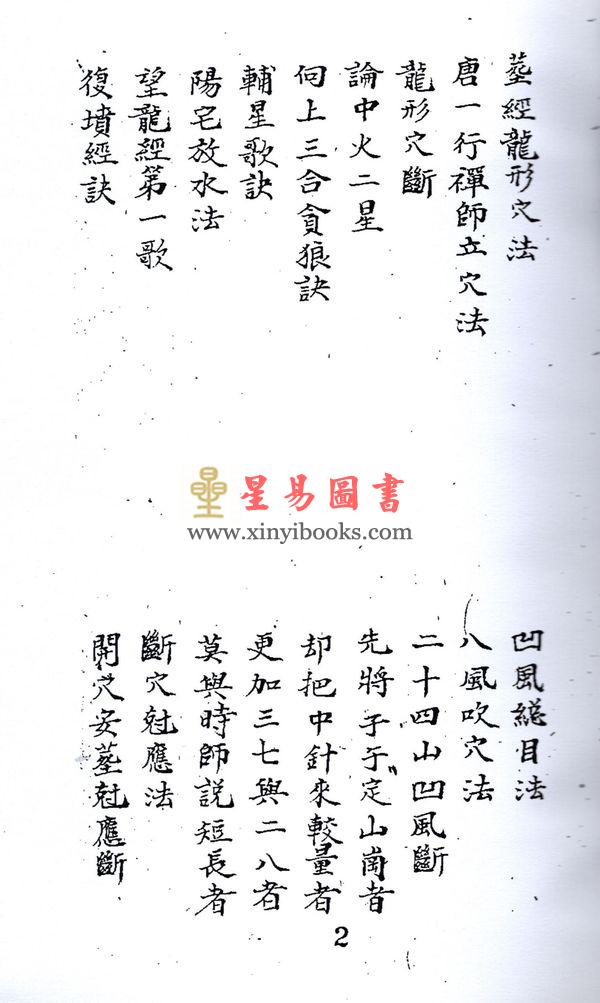 葬經龍形穴法
唐一行禪師立穴法
龍形穴斷
論中火二星
向上三合貪狼訣
輔星歌訣
陽宅放水法
望龍經第一歌
復墳經訣
星易圖書
www.xinyibooks.com
凹風總目法
八風吹穴法
二十四山凹風斷
先將子午定山崗者
却把中針來較量者
更加三七與二八者
莫與時師說短長者
斷穴尅應法
開穴安葬尅應斷
2